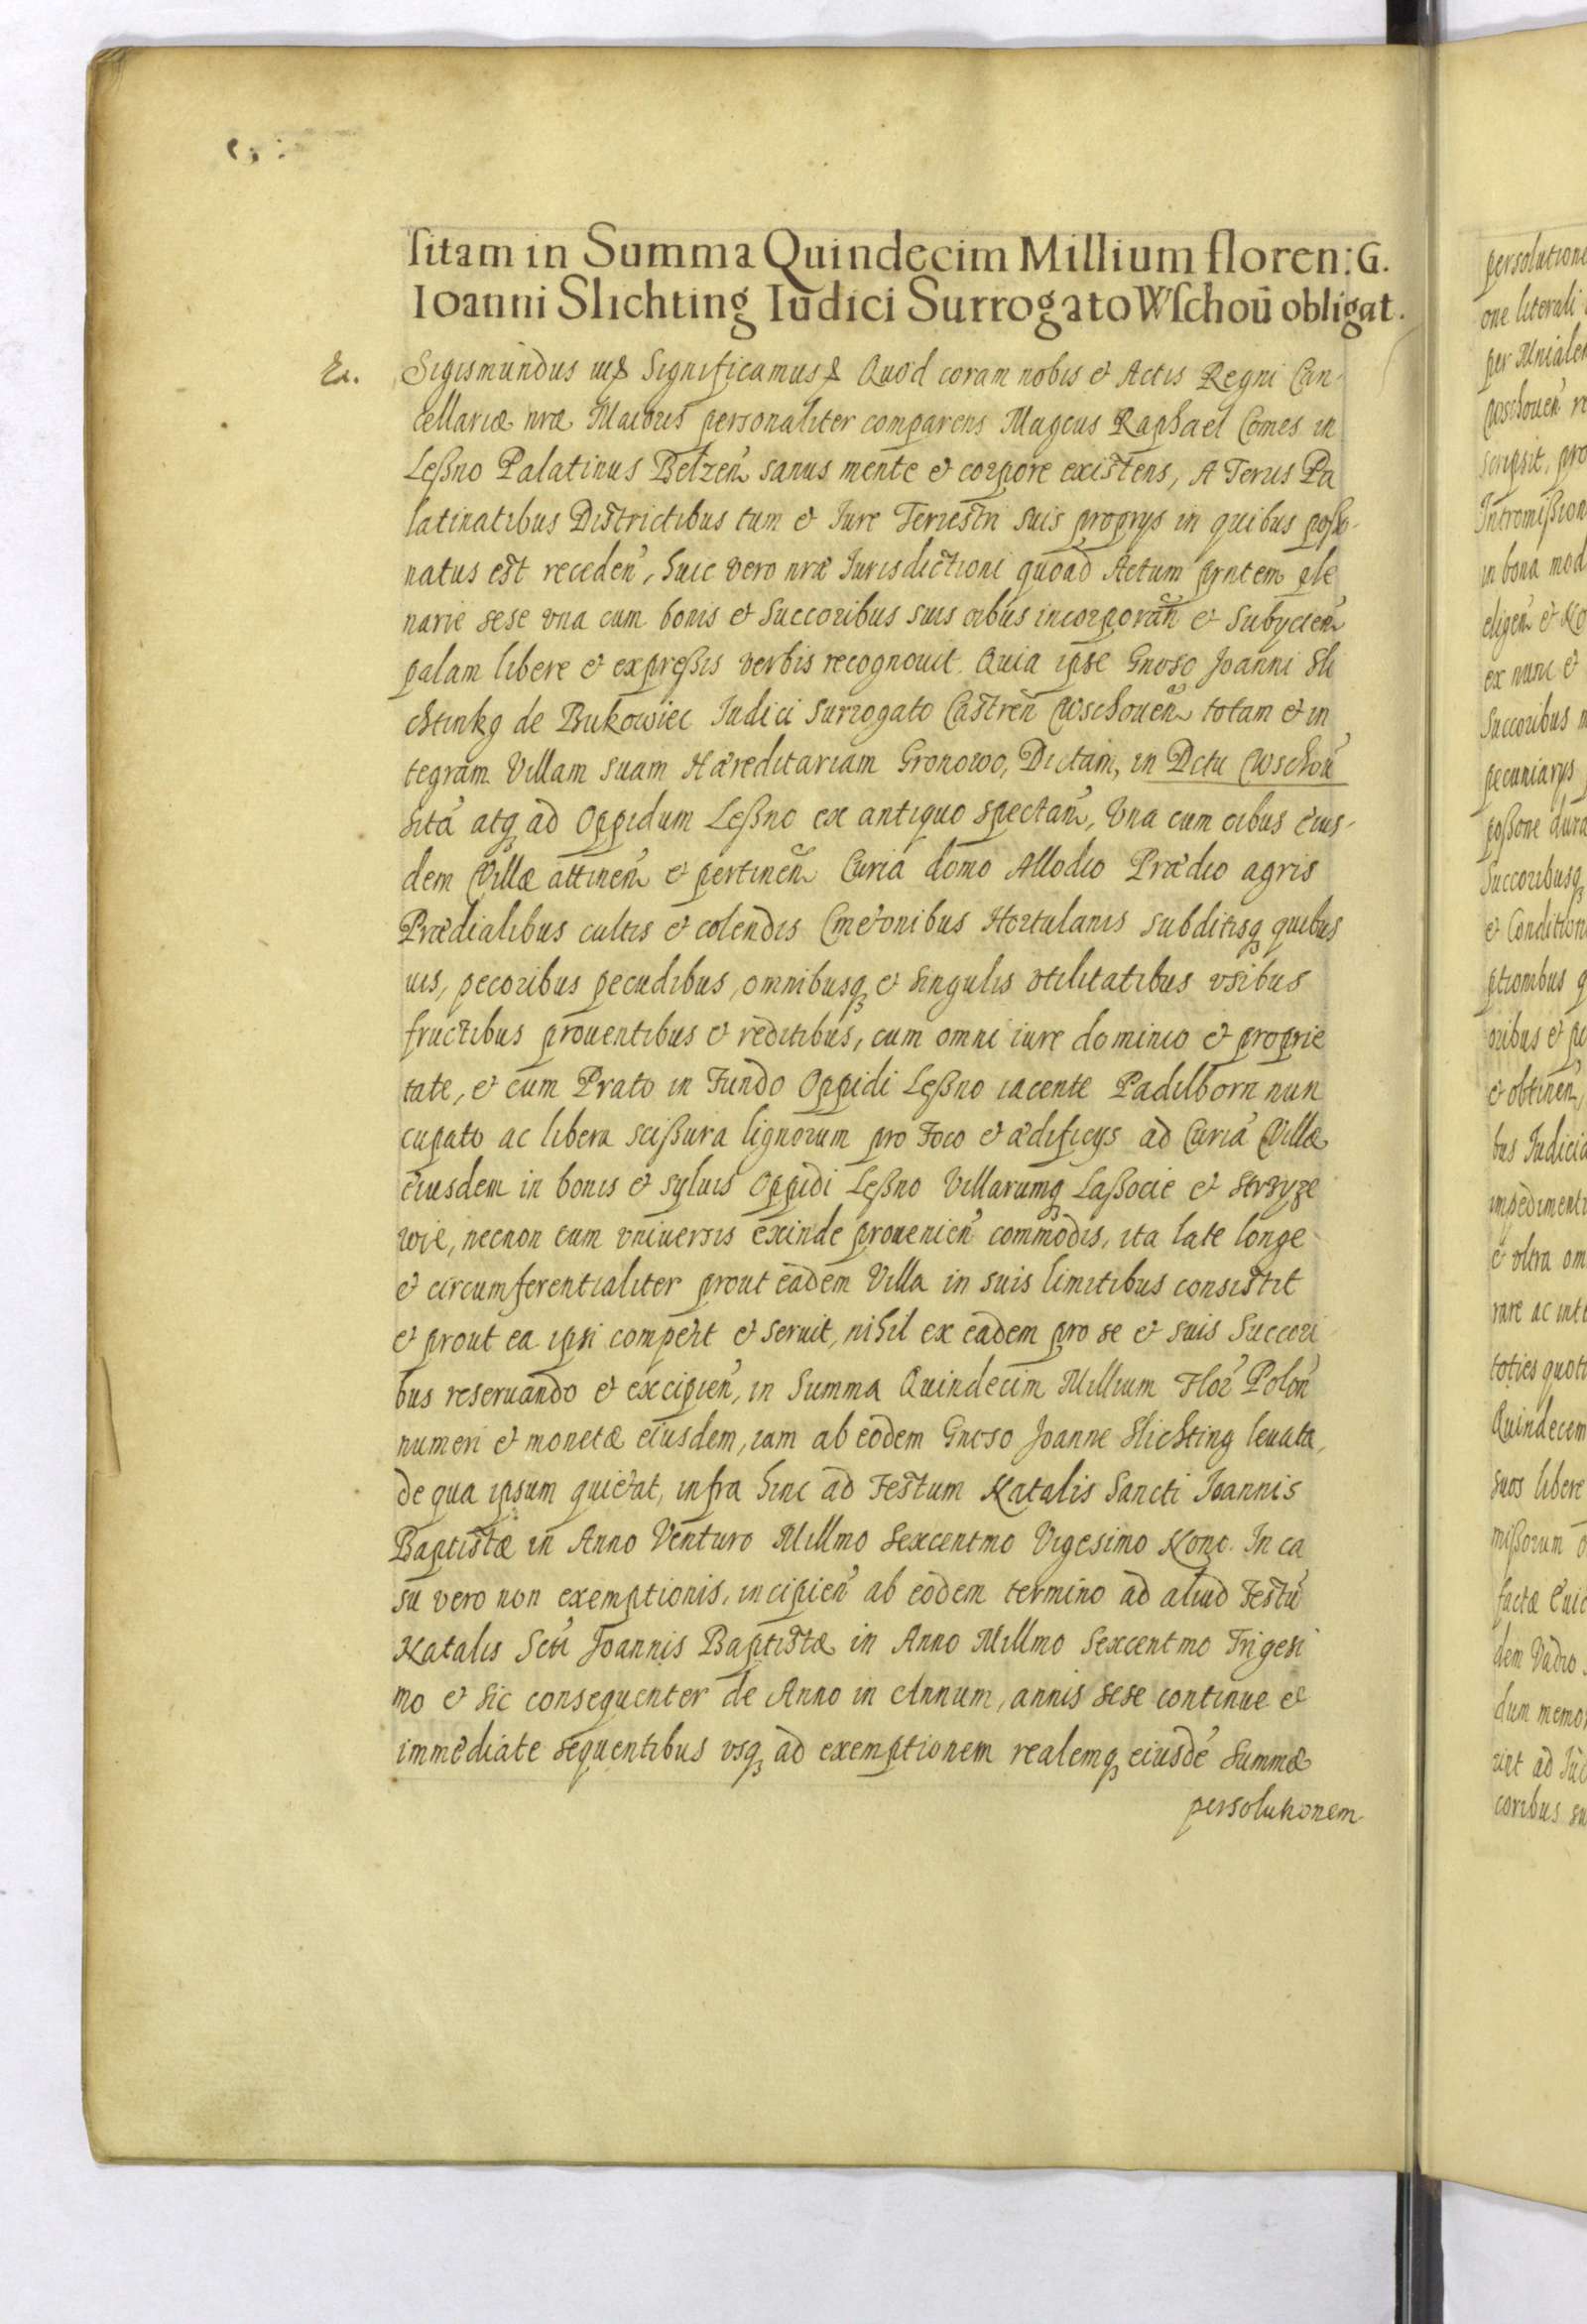 sitam in Summa Quindecim Millium floren: G.
Ioanni Slichting Iudici Surrogato Wschoū obligat.
Sigismundus Significamus Quod coram nobis et Actis Regni Can-
cellariæ nræ Maioris personaliter comparens Magcus Raphael Comes in
Leßno Palatinus Belzen̄ sanus mente et corpore existens, A Terris Pa
latinatibus Districtibus tum et Iure Terrestri suis proprys in quibus posso-
natus est receden̄, huic vero nræ Iurisdictioni quoad Actum prntem ple
narie sese vna cum bonis et Succoribus suis oibus incorporan̄ et Subycien̄
palam libere et expreßis verbis recognouit. Quia ipse Gnoso Joanni Sli
chtinkg de Bukowiec Iudici surrogato Castren̄ Wschouen̄ totam et in
tegram Villam suam Hæreditariam Gronowo, Dictam, in Dctu Wschou̅
sitā atq, ad Oppidum Leßno ex antiquo spectan̄, Vna cum oibus eius-
dem Villæ attinen̄ et pertinen̄ Curia domo Allodio Prædio agris
Prædialibus cultis et colendis Cmetonibus Hortulanis subditisq, quibus
uis, pecoribus pecudibus, omnibusq, et singulis vtilitatibus vsibus
fructibus prouentibus et reditibus, cum omni iure dominio et proprie
tate, et cum Prato in Fundo Oppidi Leßno iacente Padilborn nun
cupato ac libera scißura lignorum pro Foco et ædificys ad Curiā Villæ
eiusdem in bonis et syluis Oppidi Leßno Villarumq, Laßocie et Strzyze
wie, necnon cum vniuersis exinde prouenien̄ commodis, ita late longe
et circumferentialiter prout eadem Villa in suis limitibus consistit
et prout ea ipsi competit et seruit, nihil ex eadem pro se et suis Succori
bus reseruando et excipien̄, in Summa Quindecim Millium Flor̄ Polon̄
numeri et monetæ eiusdem, iam ab eodem Gnoso Joanne Slichting leuata,
de qua ipsum quietat, infra hinc ad Festum Natalis Sancti Joannis
Baptistæ in Anno Venturo Millmo Sexcentmo Vigesimo Nono. In ca
su vero non exemptionis, incipien̄ ab eodem termino ad aliud Festū
Natalis Scti Joannis Baptistæ in Anno Millmo Sexcentmo Trigesi
mo et sic consequenter de Anno in Annum, annis sese continue et
immediate sequentibus vsq, ad exemptionem realemq, eiusdē Summæ
persolutionem